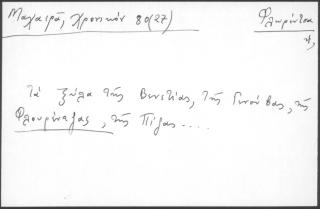 Μαχαιρᾶ, Χρονικόν 80(27)
Φλωρέντσα
τὰ ξύλα τῆς Βενετίας, τῆς Γενούβας, τῆς
Φλουρέντζας, τῆς Πίζας....